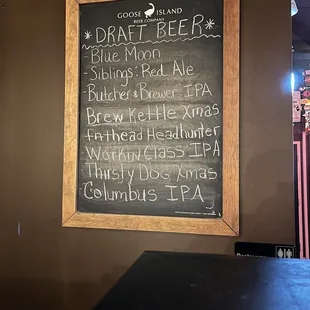 GOOSE ISLAND
BEER COMPANY
* DRAFT BEER *
- Blue Moon
- Siblings: Red Ale
- Butcher & Brewer IPA
Brew Kettle Xmas
Fathead Headhunter
Workin Class IPA
Thirsty Dog Xmas
Columbus IPA